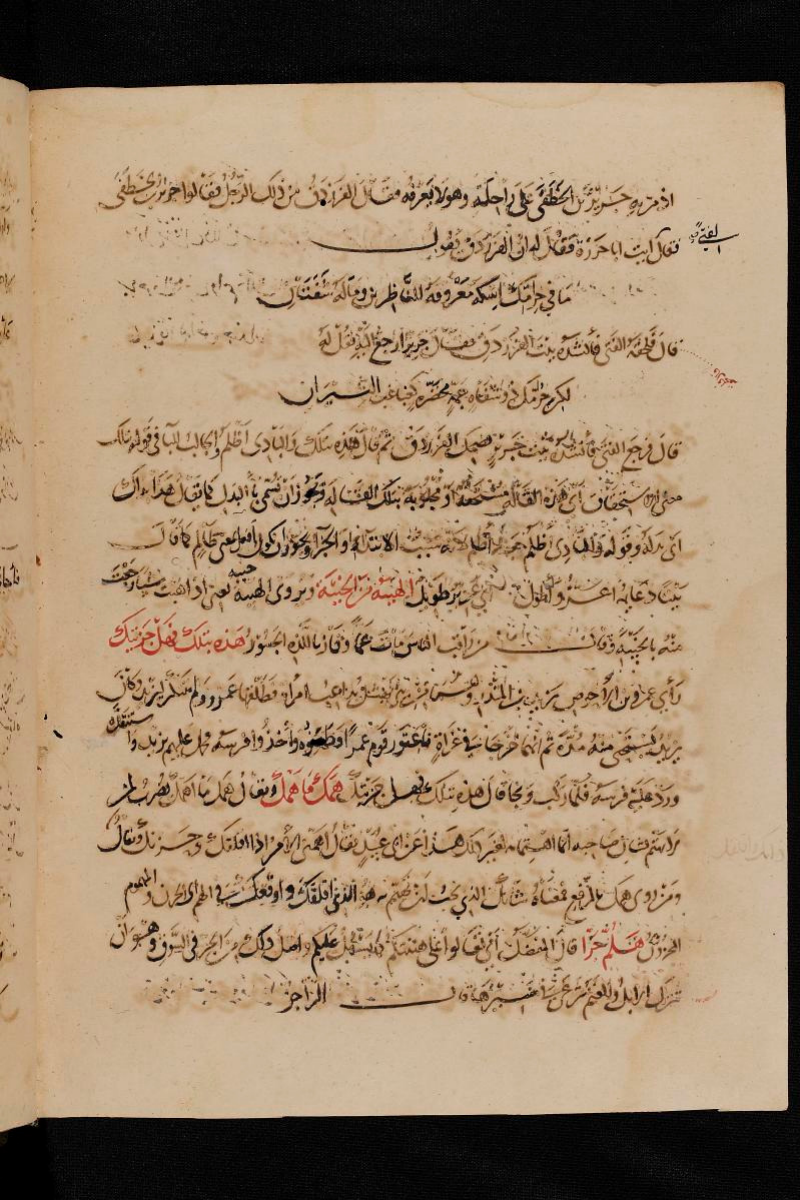 اذ مر به جرير بن الخطفى على راحلته وهو لا يعرفه فقال الفرزدق من ذلك الرجل فقالوا جرير بن الخطفى
فقال ايت ابا حزرة فقل له ان الفرزدق يقول
الفتى
ما في حرامك اسكة معروفة للناظرين وما له شفتان
قال فلحقه الفتى فأنشده بيت الفرزدق فقال جرير ارجع اليه فقل له
لكن حرامك ذو شفاه جمة محضرة كغباغب الثيران
قال فرجع الفتى فأنشده بيت جرير فضحك الفرزدق ثم قال هذه بتلك والبادى اظلم والباء في قوله بتلك
معنى الاستحقاق اى هذه الفعالة مستحقة او مجلوبة بتلك الفعالة ويجوز ان تسمى باء البدل كما يقال هذا بذاك
اى بدله وقوله والبادى اظلم جعله اظلم لانه سبب الابتداء والجزاء ويجوز ان يكون افعل بمعنى فاعل كما قال
بيتا دعائمه اعز واطول اى عزيز طويل الهيبة من الخيبة ويروى الهيبة خيبة يعنى اذا هبت شيئا رجعت
منه بالخيبة وقال من راقب الناس مات غما وفاز باللذة الجسور هذه بتلك فهل جزيتك
رأى عمرو بن الاحوص يزيد بن المنذر وهما من نهشل يداعب امرأته فطلقها عمرو ولم يتنكر ليزيد وكان
يزيد يستحيى منه مدة ثم انهما خرجا في غزاة فاعتور قوم عمرا فطعنوه واخذوا فرسه فحمل عليهم يزيد واستنقذه
ورد عليه فرسه فلما ركب ونجا قال هذه بتلك فهل جزيتك همك ما همك ويقال همك ما اهمك يضرب لمن
لا يهتم بشان صاحبه انما اهتمامه لغير ذلك هذا عن ابى عبيد يقال اهمنى الامر اذا اقلقك وحزنك ويقال
ومن روى همك بالرفع فمعناه شانك الذى يجب ان تهتم به هو الذى اقلقك واوقعك في الهم اى الحزن والمهموم
المحزون هلم جرا قال المفضل اى تعالوا على هينتكم كما يسهل عليكم واصل ذلك من الجر في السوق وهو ان
تترك الابل والغنم ترعى في سيرها قال الراجز